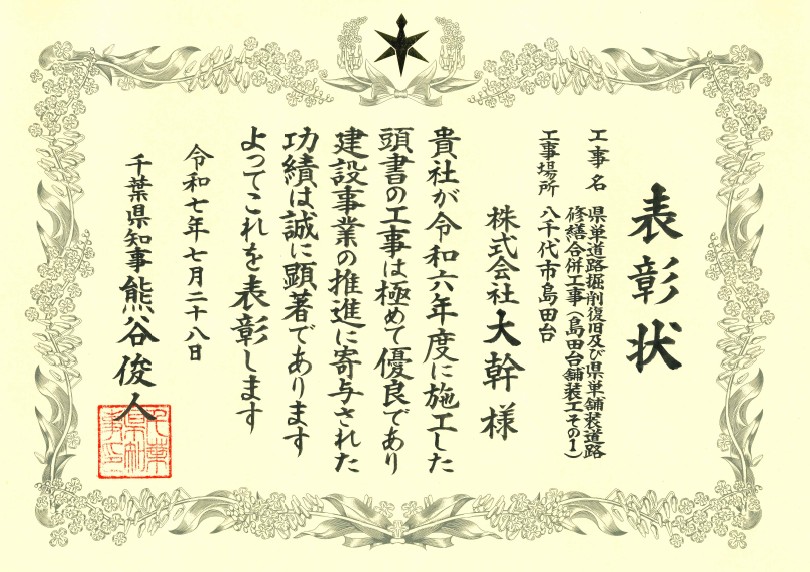 表彰状
工事名 県単道路掘削復旧及び県単舗装道路
修繕合併工事（島田台舗装工その１）
工事場所 八千代市島田台
株式会社大幹様
貴社が令和六年度に施工した
頭書の工事は極めて優良であり
建設事業の推進に寄与された
功績は誠に顕著であります
よってこれを表彰します
令和七年七月二十八日
千葉県知事熊谷俊人
千葉
県知
事印